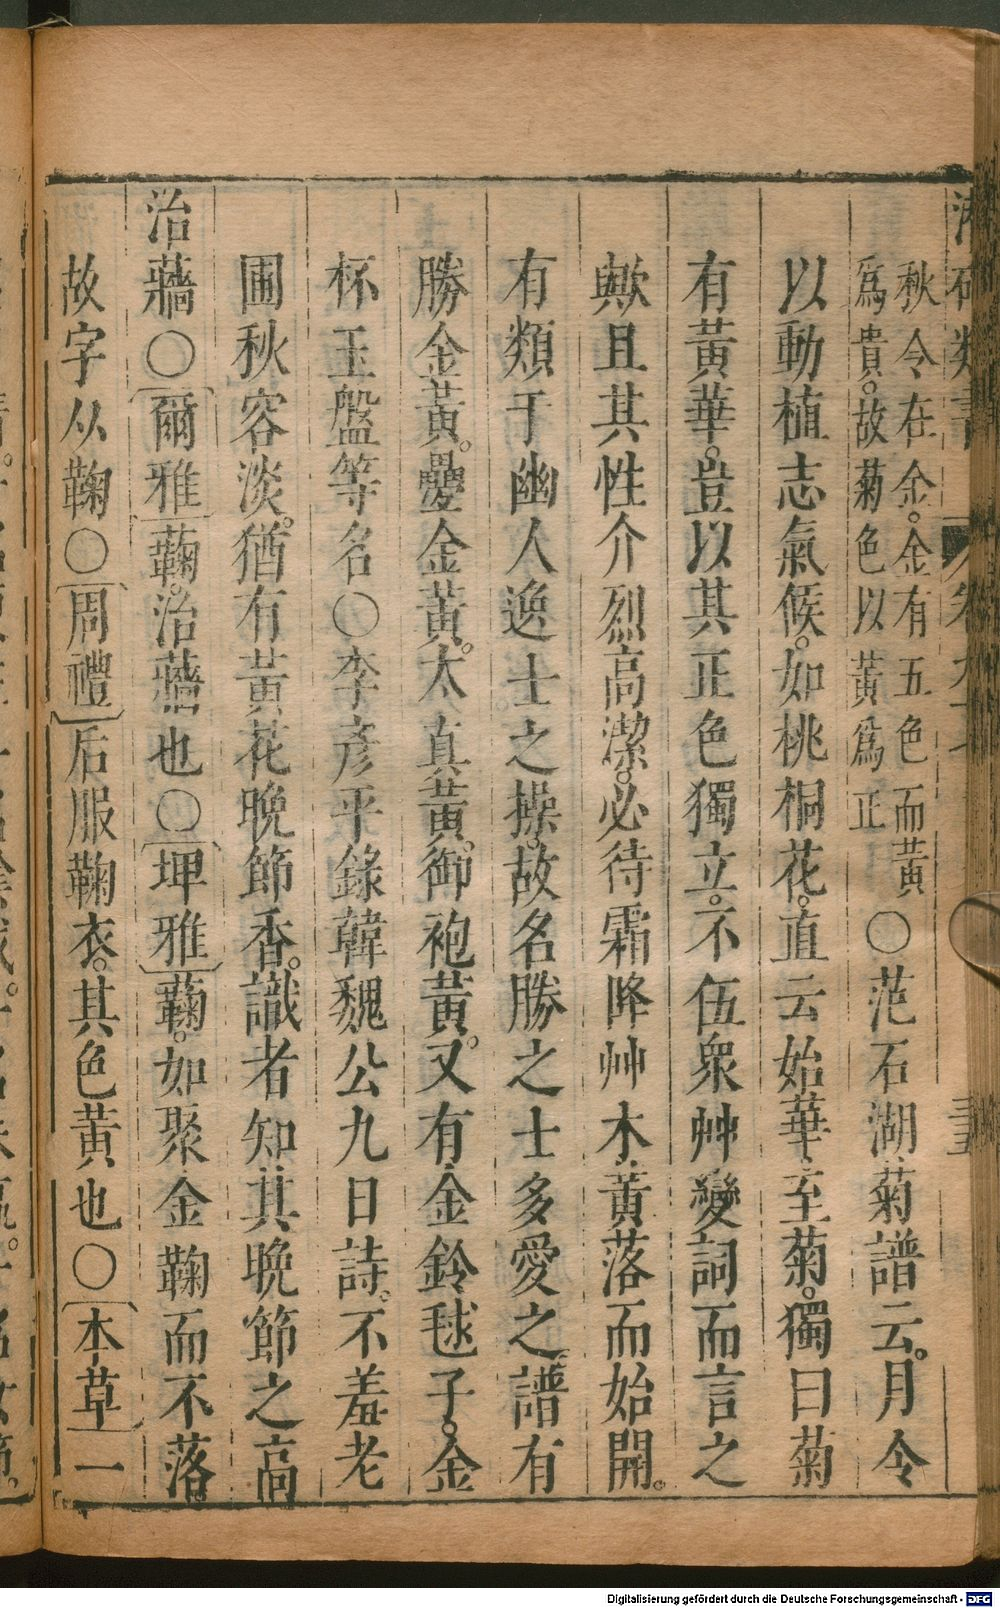 秋令在金。金有五色而黃
爲貴。故菊色以黃爲正
○范石湖菊譜云。月令
以動植志氣候。如桃桐花。直云始華。至菊。獨曰菊
有黃華。豈以其正色獨立。不伍衆艸變詞而言之
歟且其性介烈高潔。必待霜降艸木黃落而始開。
有類于幽人逸士之操。故名勝之士多愛之。譜有
勝金黃。疊金黃。太真黃。御袍黃。又有金鈴毬子。金
杯玉盤等名○李彥平錄韓魏公九日詩。不羞老
圃秋容淡。猶有黃花晚節香。識者知其晚節之高
治蘠○爾雅蘜。治蘠也○埤雅蘜。如聚金鞠而不落。
故字从鞠○周禮后服鞠衣。其色黃也○本草一
Digitalisierung gefördert durch die Deutsche Forschungsgemeinschaft - DFG